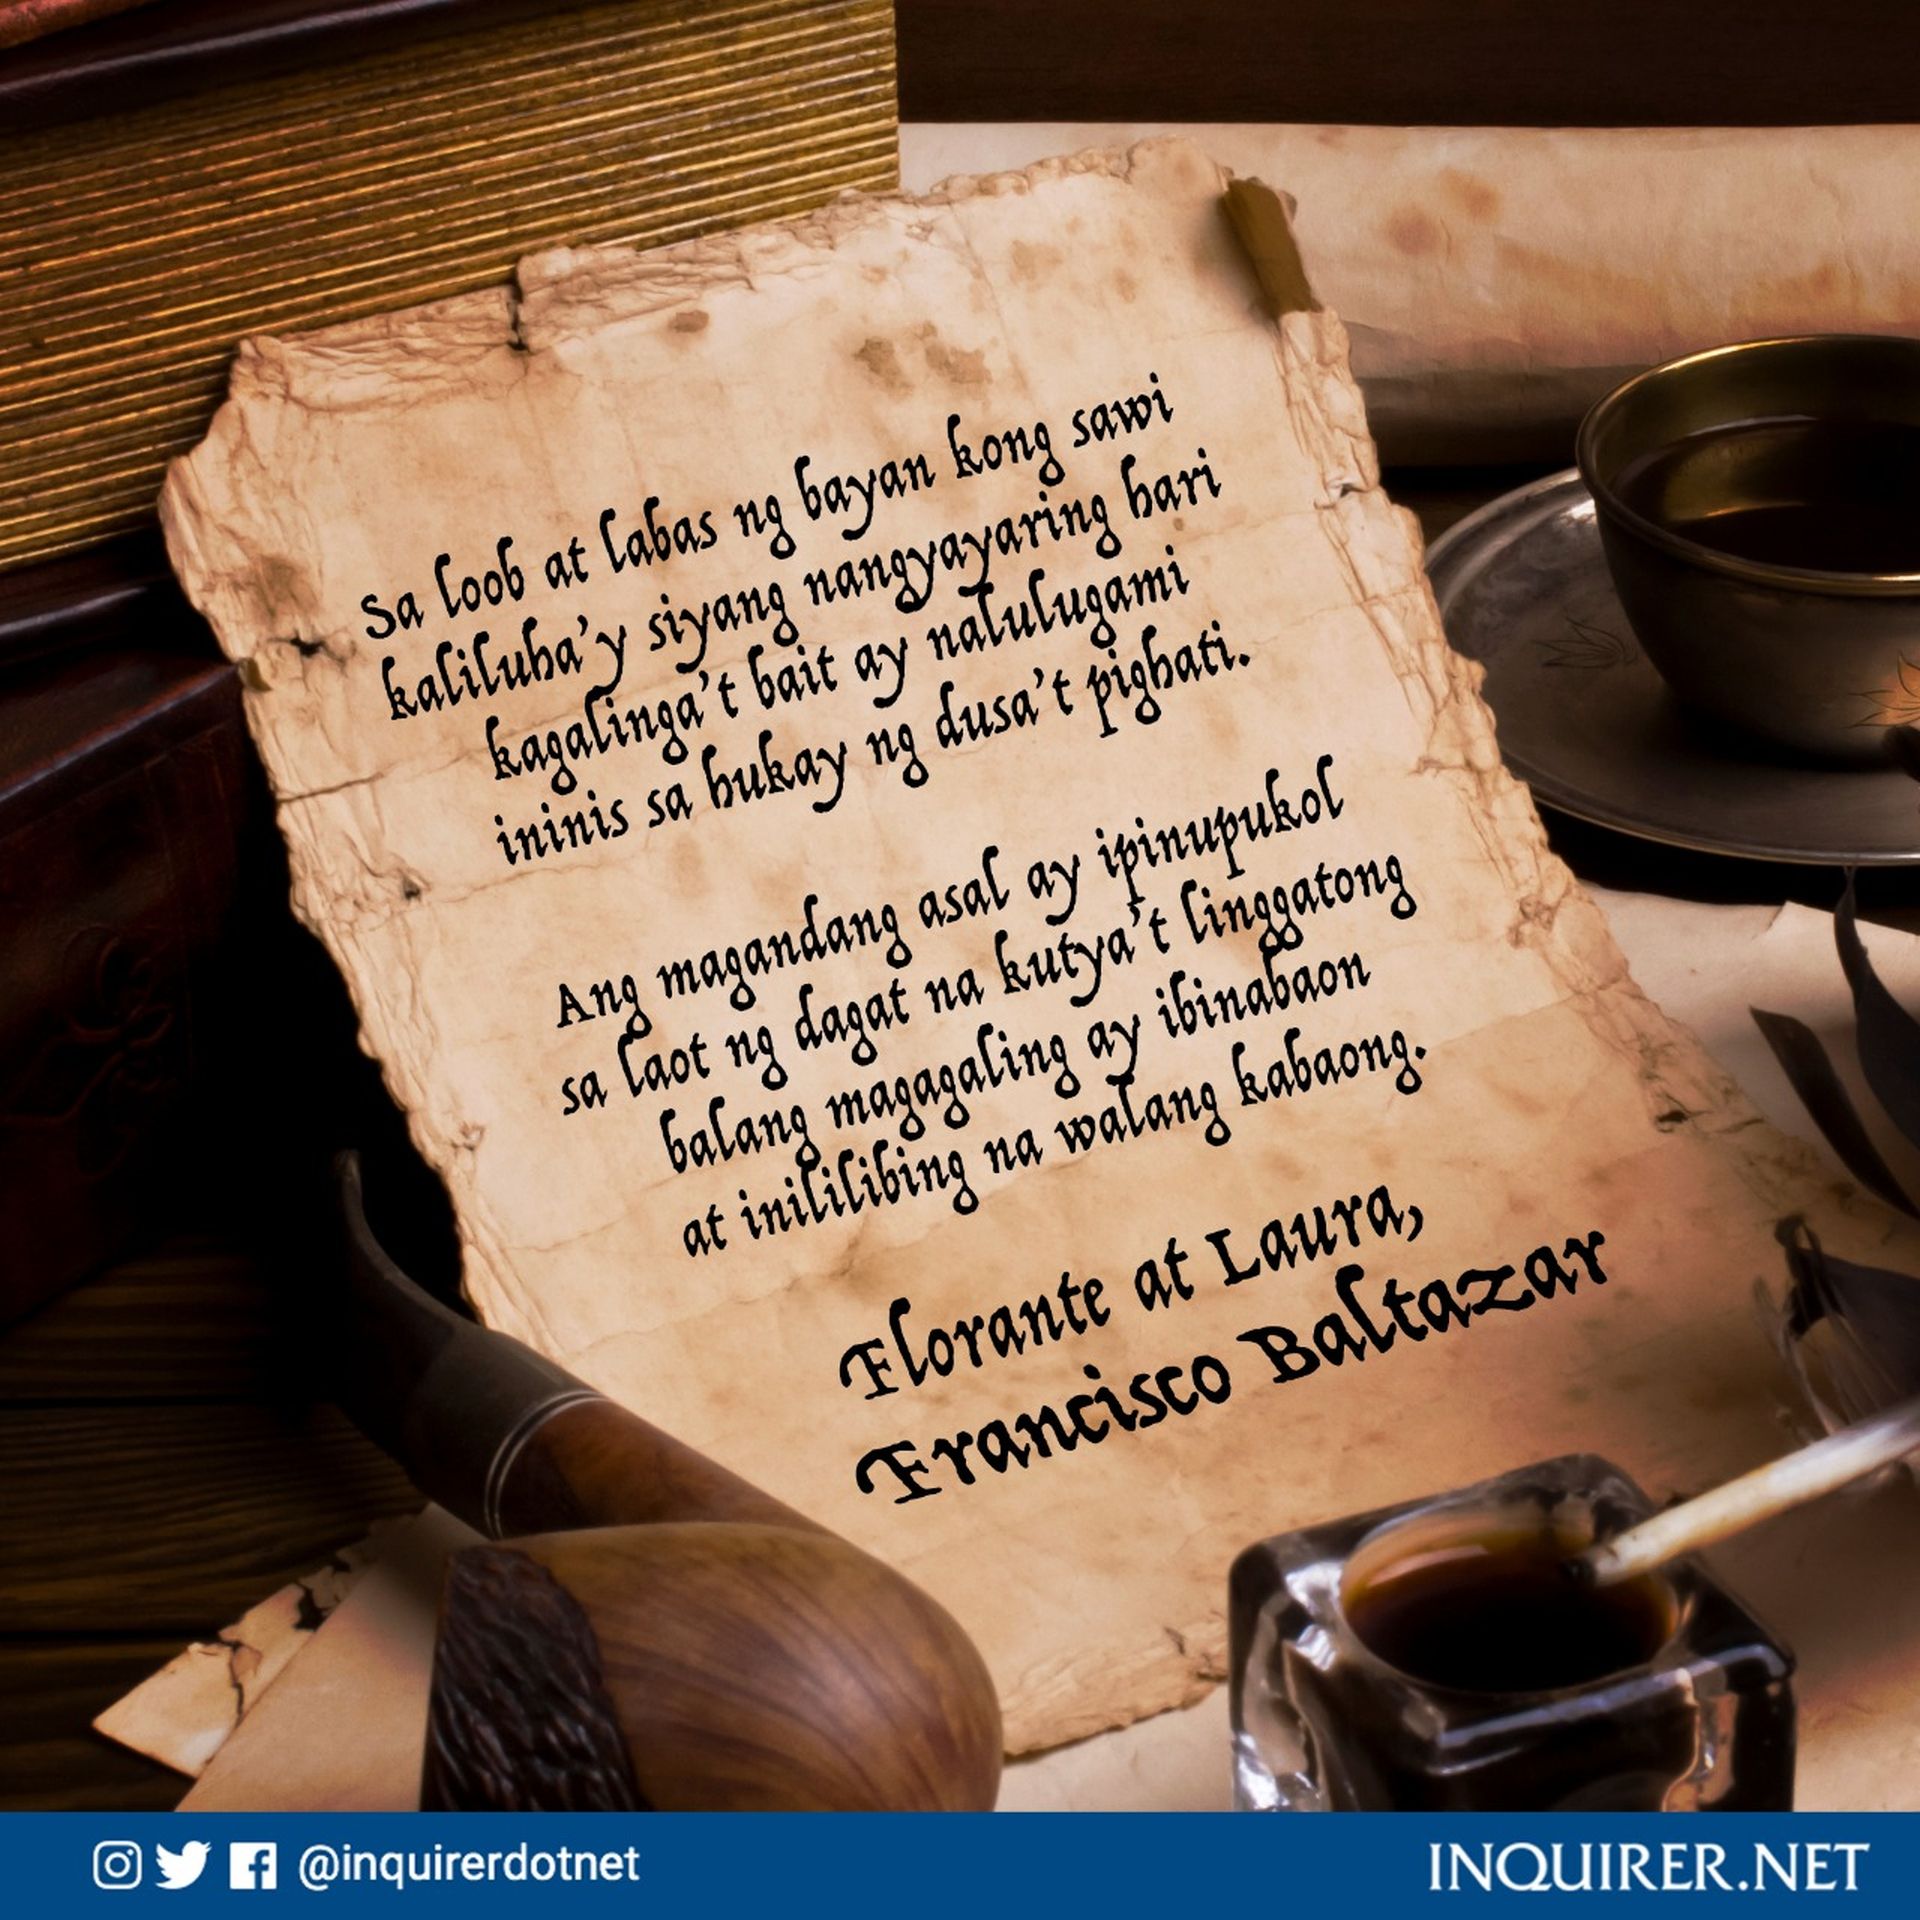 Sa loob at labas ng bayan kong sawi
kaliluha'y siyang nangyayaring hari
kagalinga't bait ay nalulugami
ininis sa hukay ng dusa't pighati.
Ang magandang asal ay ipinupukol
sa laot ng dagat na kutya't linggatong
balang magagaling ay ibinabaon
at inililibing na walang kabaong.
Florante at Laura,
Francisco Baltazar
@inquirerdotnet
INQUIRER.NET